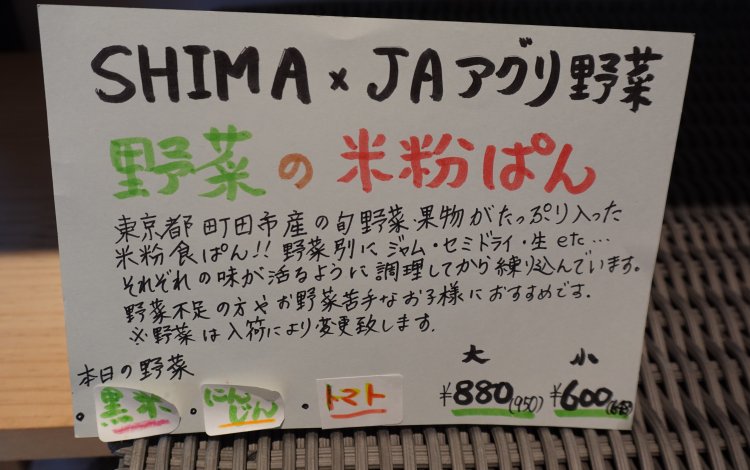 SHIMA × JAアグリ野菜
野菜の米粉ぱん
東京都町田市産の旬野菜・果物がたっぷり入った
米粉食ぱん!! 野菜別に ジャム・セミドライ・生 etc…
それぞれの味が活るように調理してから練り込んでいます。
野菜不足の方やお野菜苦手なお子様におすすめです.
※野菜は入荷により変更致します.
本日の野菜
・黒米 ・にんじん ・トマト
大 小
¥880(950) ¥600